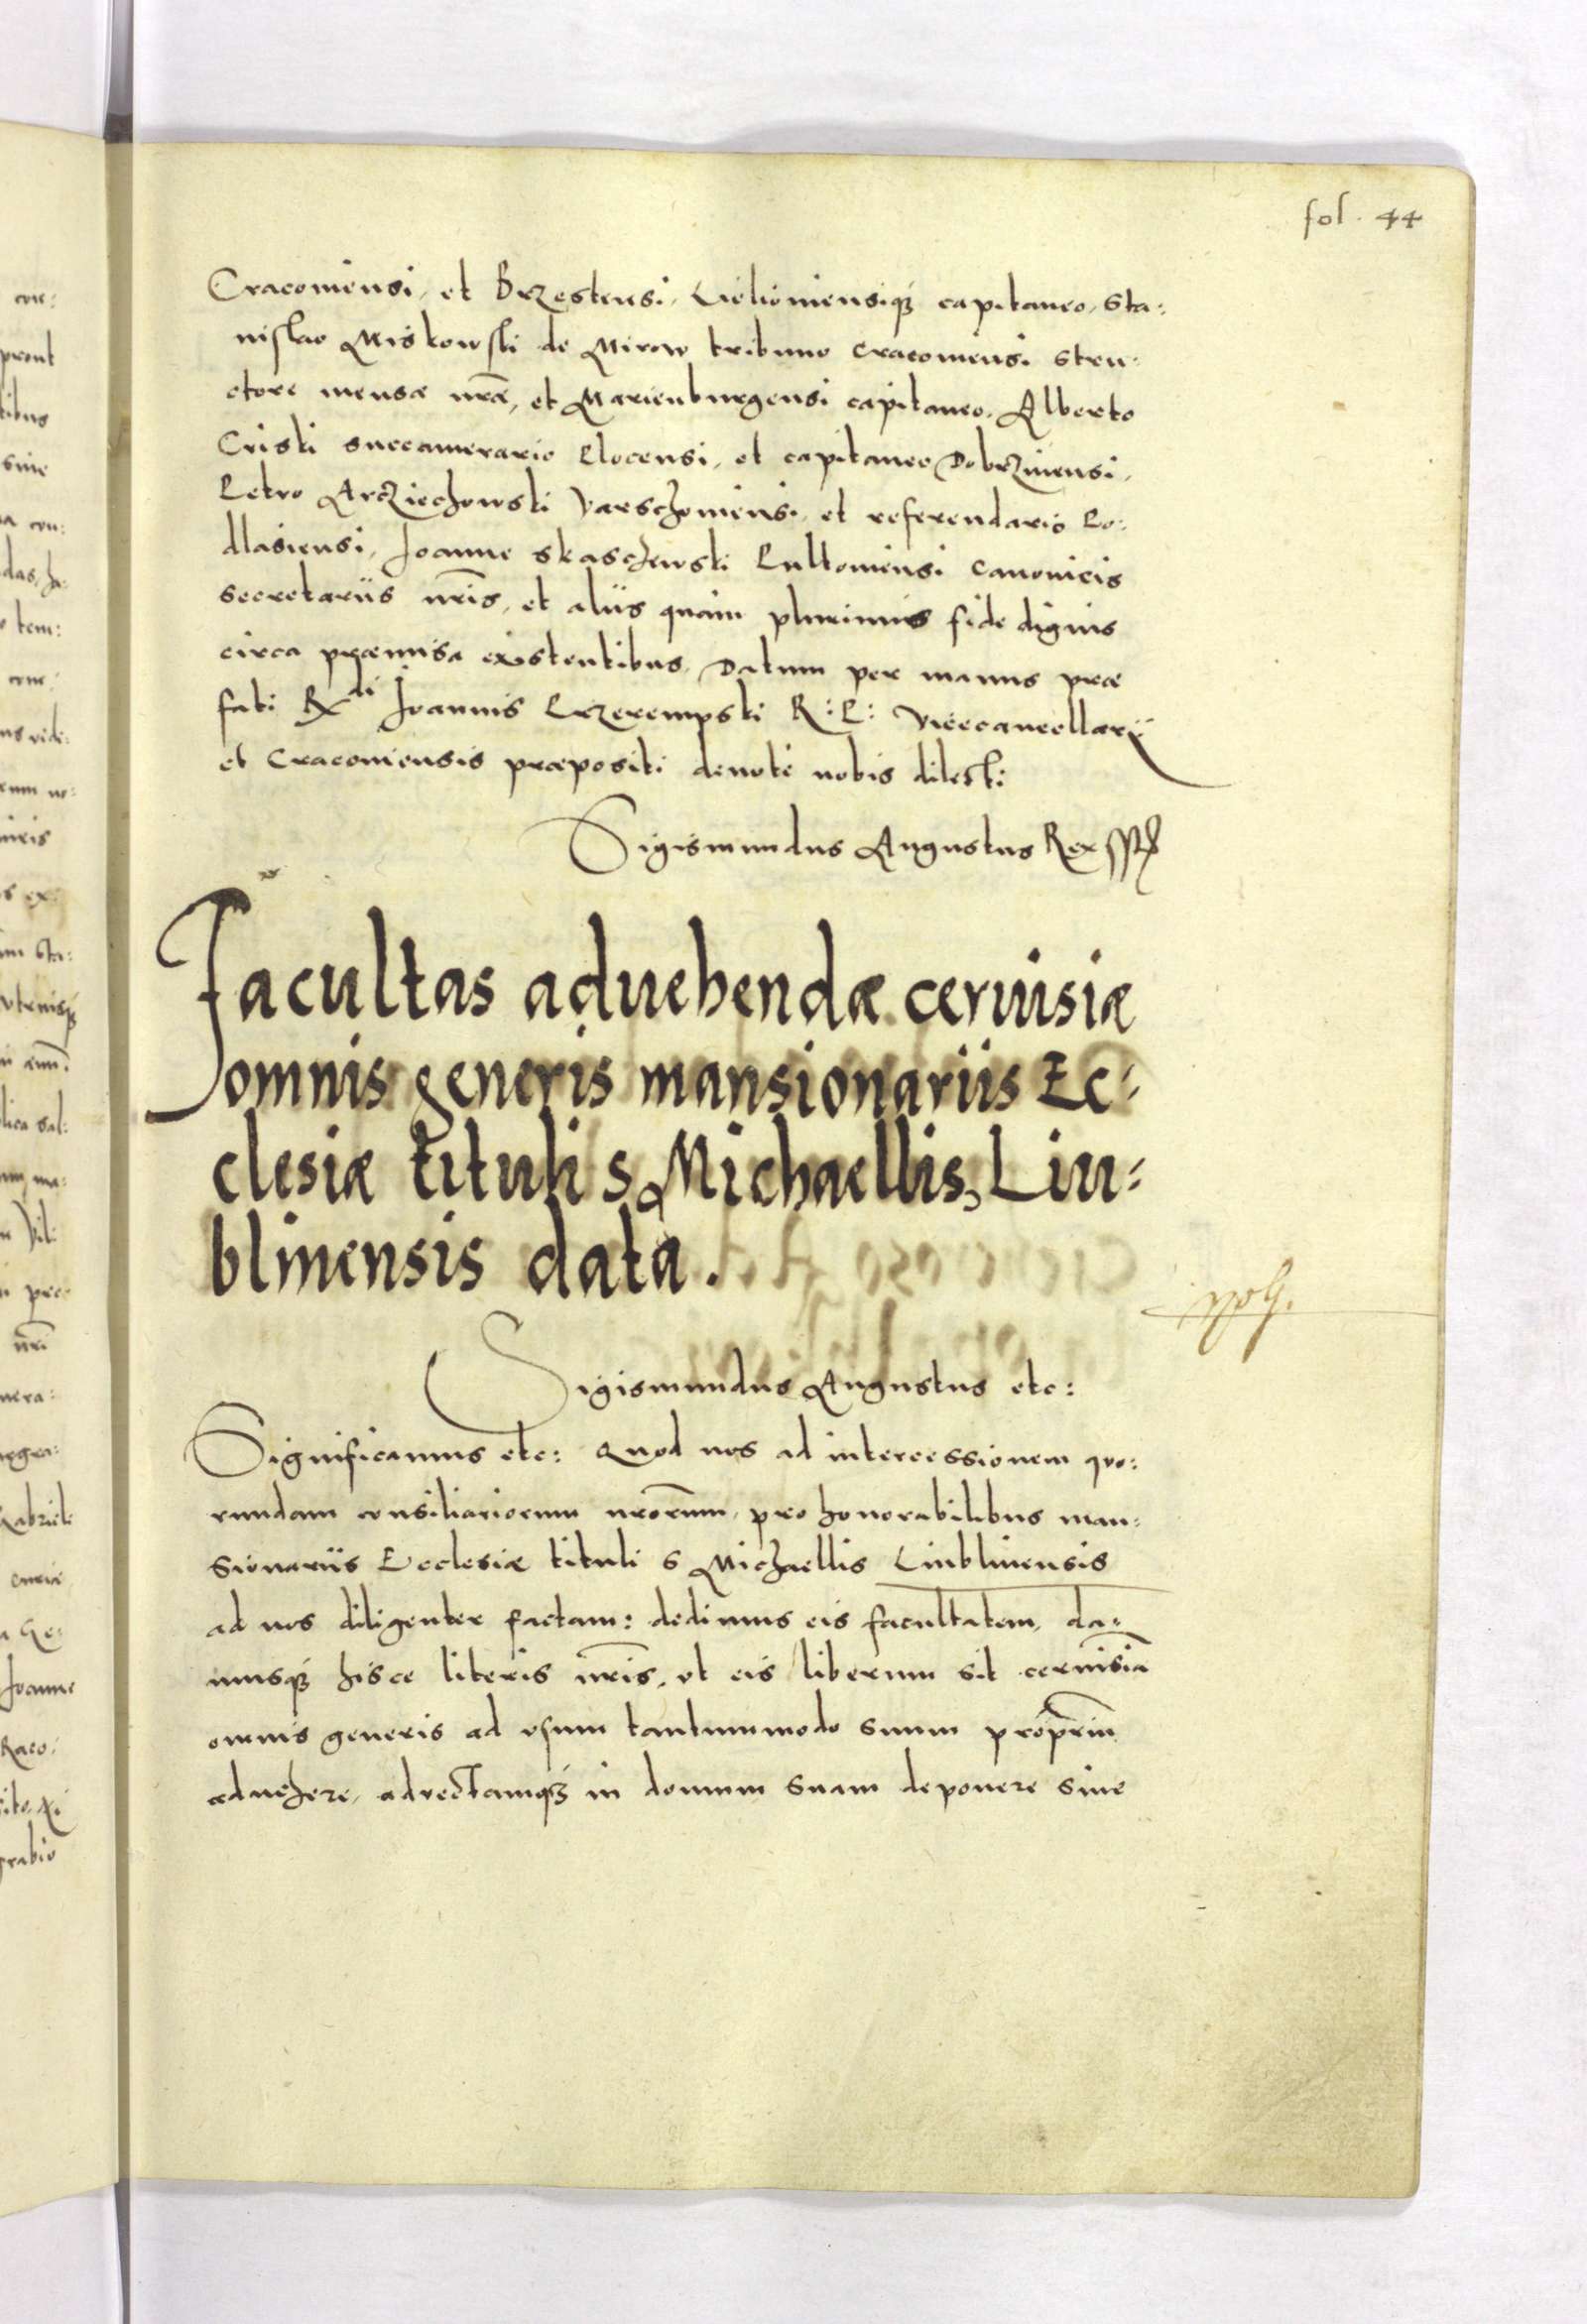 fol. 44
Cracoviensi, et Brzestensi, Lieloviensiq₃ capitaneo, Sta:
nislao Miskowski de Mirow tribuno Cracoviensi Stru:
ctore mensæ nr̄æ, et Marienburgensi capitaneo, Alberto
Criski succamerario Plocensi, et capitaneo Dobrzinensi,
Petro Arcziechowski Varschoviensi, et referendario Po:
dlasiensi, Joanne Skaschewski Pultoviensi Canonicis
Secretariis nr̄is, et aliis quàm plurimis fide dignis
circa præmisa existentibus, Datum per manus præ
fati Rᵈⁱ Joannis Przerempski R: P: Vicecancellarij
et Cracoviensis præpositi devotè nobis dilecti
Sigismundus Augustus Rex sst
Facultas aduehendæ ceruisiæ
omnis generis mansionariis Ec:
clesiæ tituli S Michaellis, Liu:
blinensis data.
Sigismundus Augustus etc:
Significamus etc: Quod nos ad intercessionem quo:
rundam consiliariorum nrōrum, pro honorabilibus man:
sionariis Ecclesiæ tituli S Michaellis Liublinensis
ad nos diligenter factam: dedimus eis facultatem, da:
musq₃ hisce literis nr̄is, ut eis liberum sit cervisiā
omnis generis ad vsum tantummodo suum propriū
aduehere, advectamq₃ in domum suam deponere sine